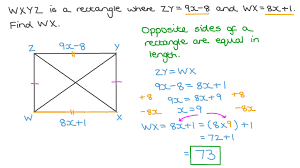 WXYZ is a rectangle where ZY=9x-8 and WX=8x+1.
Find WX.
Opposite sides of a
rectangle are equal in
length.
Z 9x-8 Y
W 8x+1 X
ZY = WX
9x-8 = 8x+1
+8 +8
9x = 8x+9
-8x -8x
x = 9
WX = 8x+1 = (8x9)+1
= 72+1
= 73